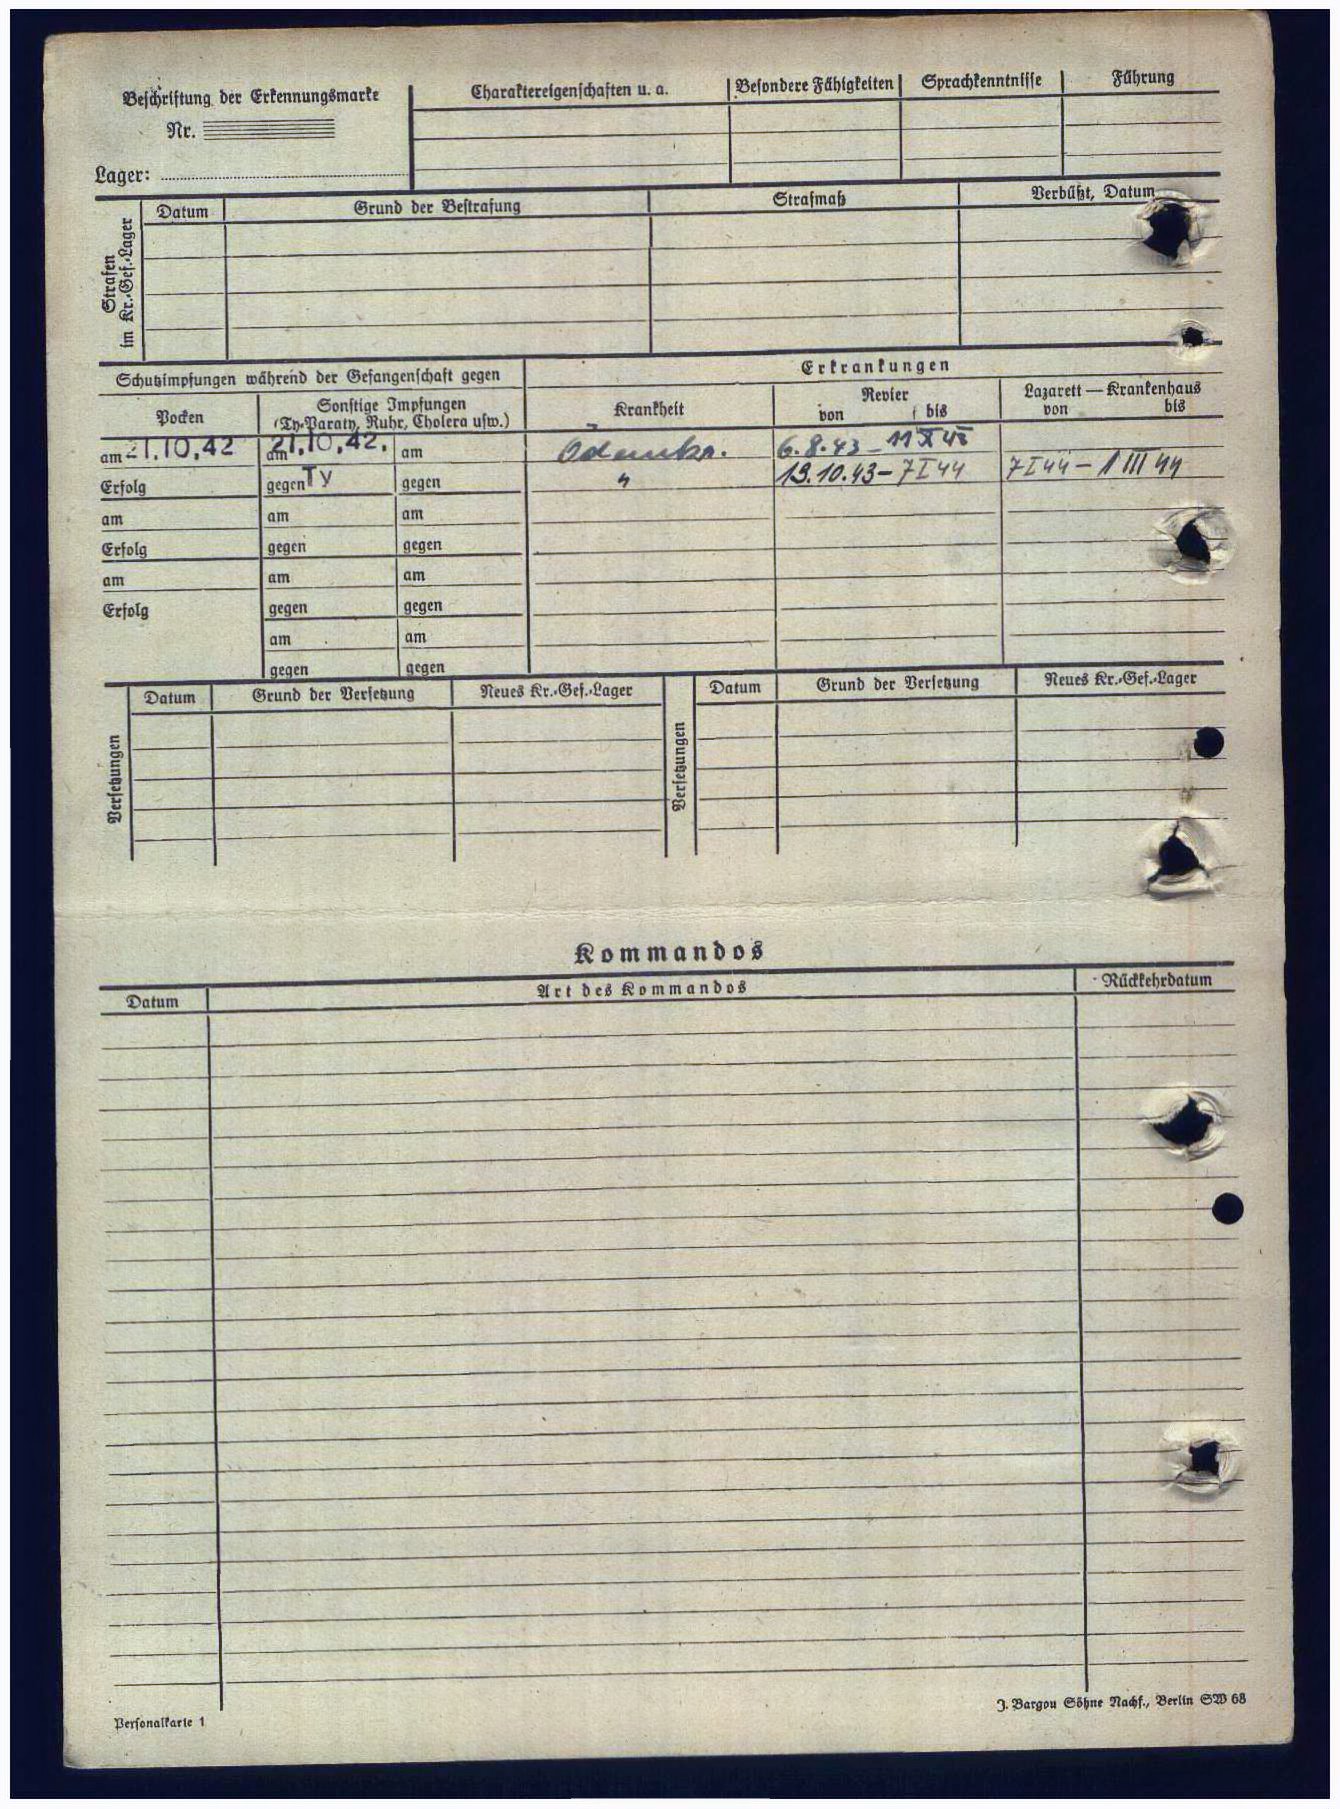 Beschriftung der Erkennungsmarke
Nr.
Lager:
Charaktereigenschaften u. a.
Besondere Fähigkeiten
Sprachkenntnisse
Führung
Strafen
im Kr.-Gef.-Lager
Datum
Grund der Bestrafung
Strafmaß
Verbüßt, Datum
Schutzimpfungen während der Gefangenschaft gegen
Erkrankungen
Pocken
Sonstige Impfungen
(Ty-Paraty, Ruhr, Cholera usw.)
Krankheit
Revier
von bis
Lazarett — Krankenhaus
von bis
am 21.10.42 am 21.10.42. am
Ödemkr. 6.8.43 – 11 X 43
Erfolg gegen Ty gegen
" 19.10.43 – 7 I 44 7 I 44 – 1 III 44
am am am
Erfolg gegen gegen
am am am
Erfolg gegen gegen
am am
gegen gegen
Versetzungen
Datum Grund der Versetzung Neues Kr.-Gef.-Lager
Versetzungen
Datum Grund der Versetzung Neues Kr.-Gef.-Lager
Kommandos
Datum Art des Kommandos Rückkehrdatum
Personalkarte 1
J. Bargou Söhne Nachf., Berlin SW 68